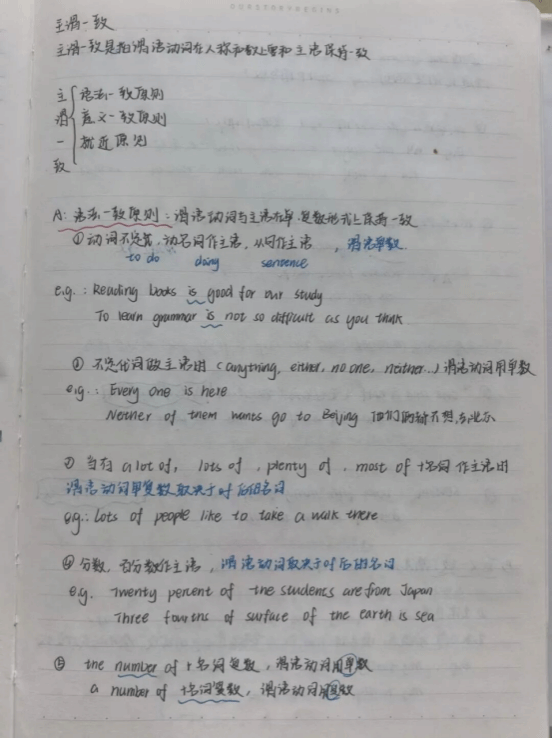 主谓一致
主谓一致是指谓语动词在人称和数上要和主语保持一致
主谓一致
语法一致原则
意义一致原则
就近原则
A: 语法一致原则：谓语动词与主语在单.复数形式上保持一致
①动词不定式，动名词作主语，从句作主语，谓语单数
to do doing sentence
e.g.: Reading books is good for our study
To learn grammar is not so difficult as you think
② 不定代词做主语时 (anything, either, no one, neither...) 谓语动词用单数
e.g.: Every one is here
Neither of them wants go to Beijing 他们两都不想去北京
③ 当有 a lot of, lots of, plenty of, most of +名词 作主语时
谓语动词单复数取决于后面名词
e.g.: Lots of people like to take a walk there
④ 分数，百分数作主语，谓语动词取决于后面名词
e.g. Twenty percent of the students are from Japan
Three fourths of surface of the earth is sea
⑤ the number of +名词复数，谓语动词用单数
a number of +名词复数，谓语动词用复数